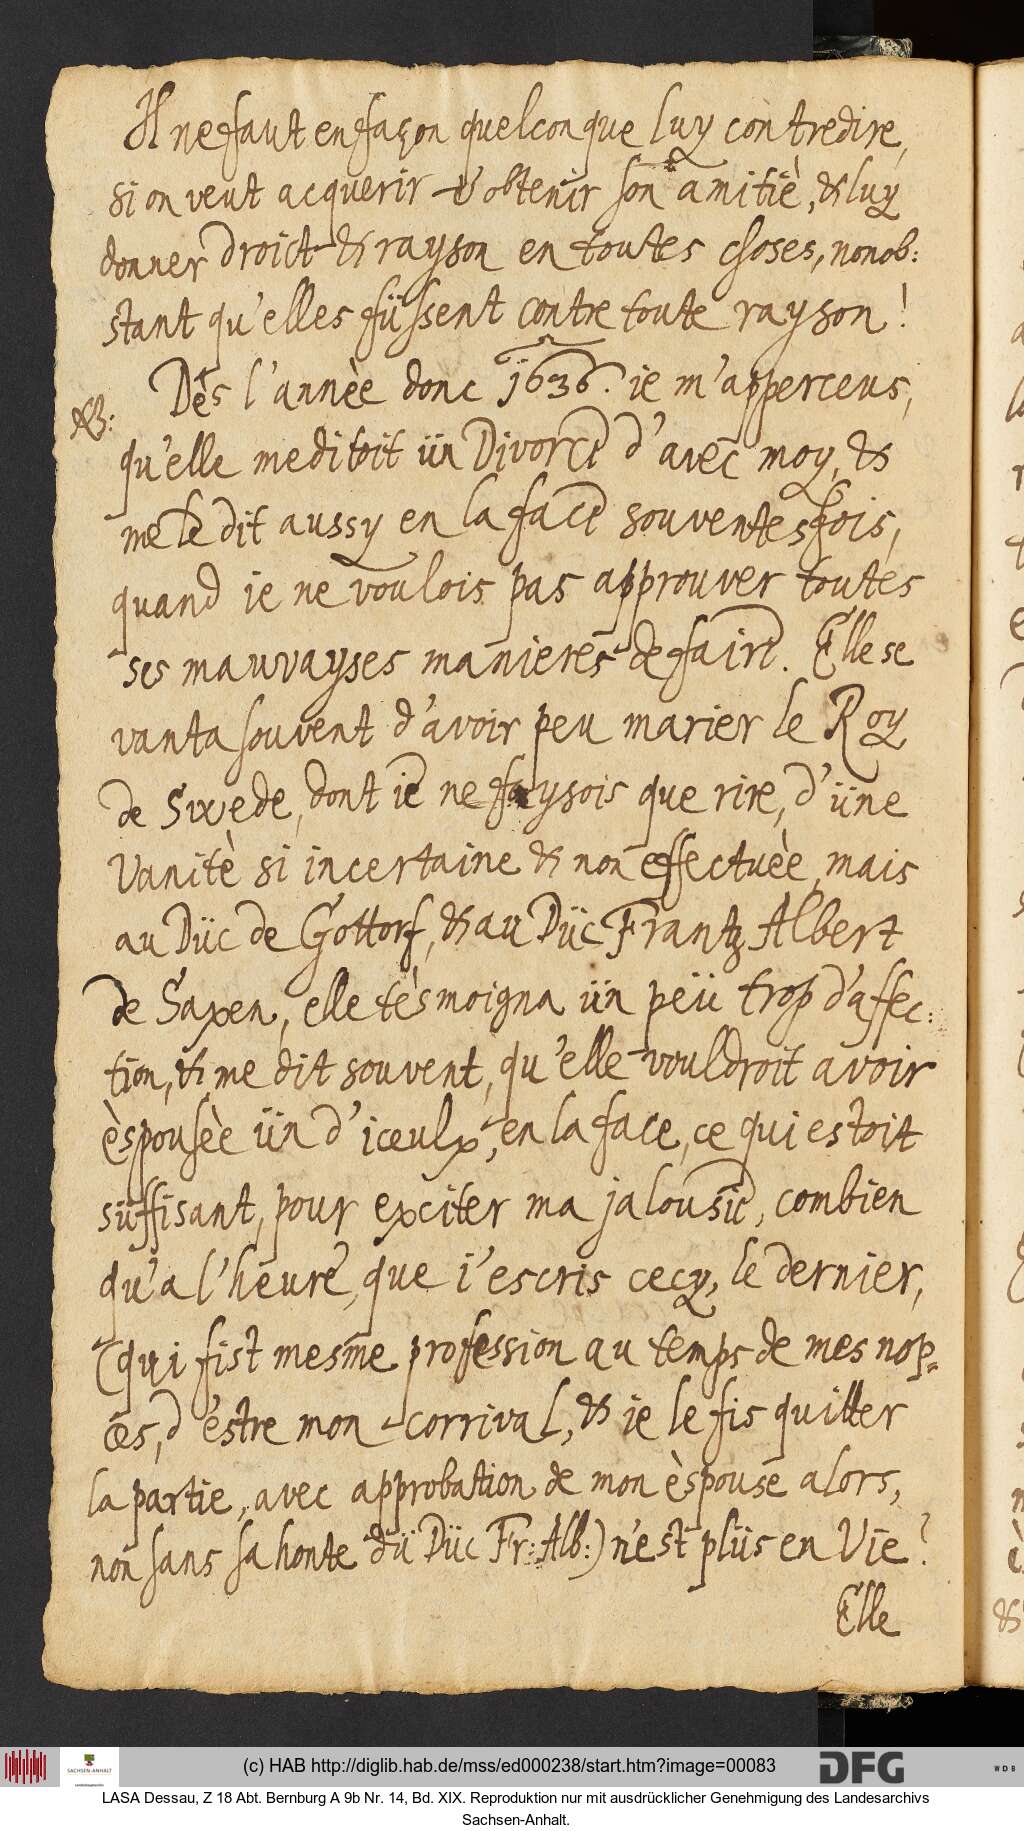 Il ne faut en façon quelconque luy contredire,
si on veut acquerir & obtenir son amitiè, & luy
donner droict & rayson en toutes choses, nonob:
stant qu'elles füssent contre toute rayson!
Dès l'annèe donc 1636. ie m'apperceus,
NB:
qu'elle meditoit ün Divorce d'avec moy, &
me le dit aussy en la face souventesfois,
quand ie ne voulois pas approuver toutes
ses mauvayses manieres de faire. Elle se
vanta souvent d'avoir peu marier le Roy
de Swede, dont ie ne faysois que rire, d'üne
Vanitè si incertaine & non effectuèe, mais
au Düc de Gottorf, & au Düc Frantz Albert
de Saxen, elle tèsmoigna ün peü trop d'affec:
tion, & me dit souvent, qu'elle vouldroit avoir
èspousèe ün d'iceulx, en la face, ce qui estoit
süffisant, pour exciter ma jalousie, combien
qu'a l'heure, que i'escris cecy, le dernier,
(qui fist mesme profession au temps de mes nop=
ces, d'estre mon corrival, & ie le fis quitter
la partie, avec approbation de mon èspouse alors,
non sans sa honte dü Düc Fr: Alb:) n'est plüs en Vie?
Elle
(c) HAB http://diglib.hab.de/mss/ed000238/start.htm?image=00083
SACHSEN-ANHALT
DFG
WDB
LASA Dessau, Z 18 Abt. Bernburg A 9b Nr. 14, Bd. XIX. Reproduktion nur mit ausdrücklicher Genehmigung des Landesarchivs
Sachsen-Anhalt.